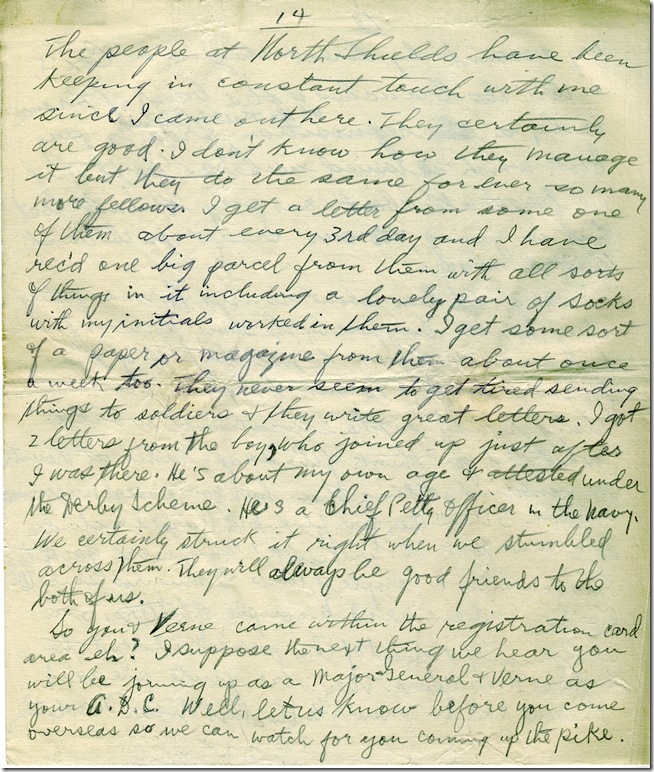 14
The people at North Shields have been
keeping in constant touch with me
since I came out here. They certainly
are good. I don't know how they manage
it but they do the same for ever so many
more fellows. I get a letter from some one
of them about every 3rd day and I have
rec'd one big parcel from them with all sorts
of things in it including a lovely pair of socks
with my initials worked in them. I get some sort
of a paper or magazine from them about once
a week too. They never seem to get tired sending
things to soldiers & they write great letters. I got
2 letters from the boy, who joined up just after
I was there. He's about my own age & attested under
the Derby Scheme. He's a Chief Petty Officer in the navy.
We certainly struck it right when we stumbled
across them. They will always be good friends to the
both of us.
So you & Verne came within the registration card
area eh? I suppose the next thing we hear you
will be joining up as a Major General & Verne as
your A.D.C. Well, let us know before you come
overseas so we can watch for you coming up the pike.